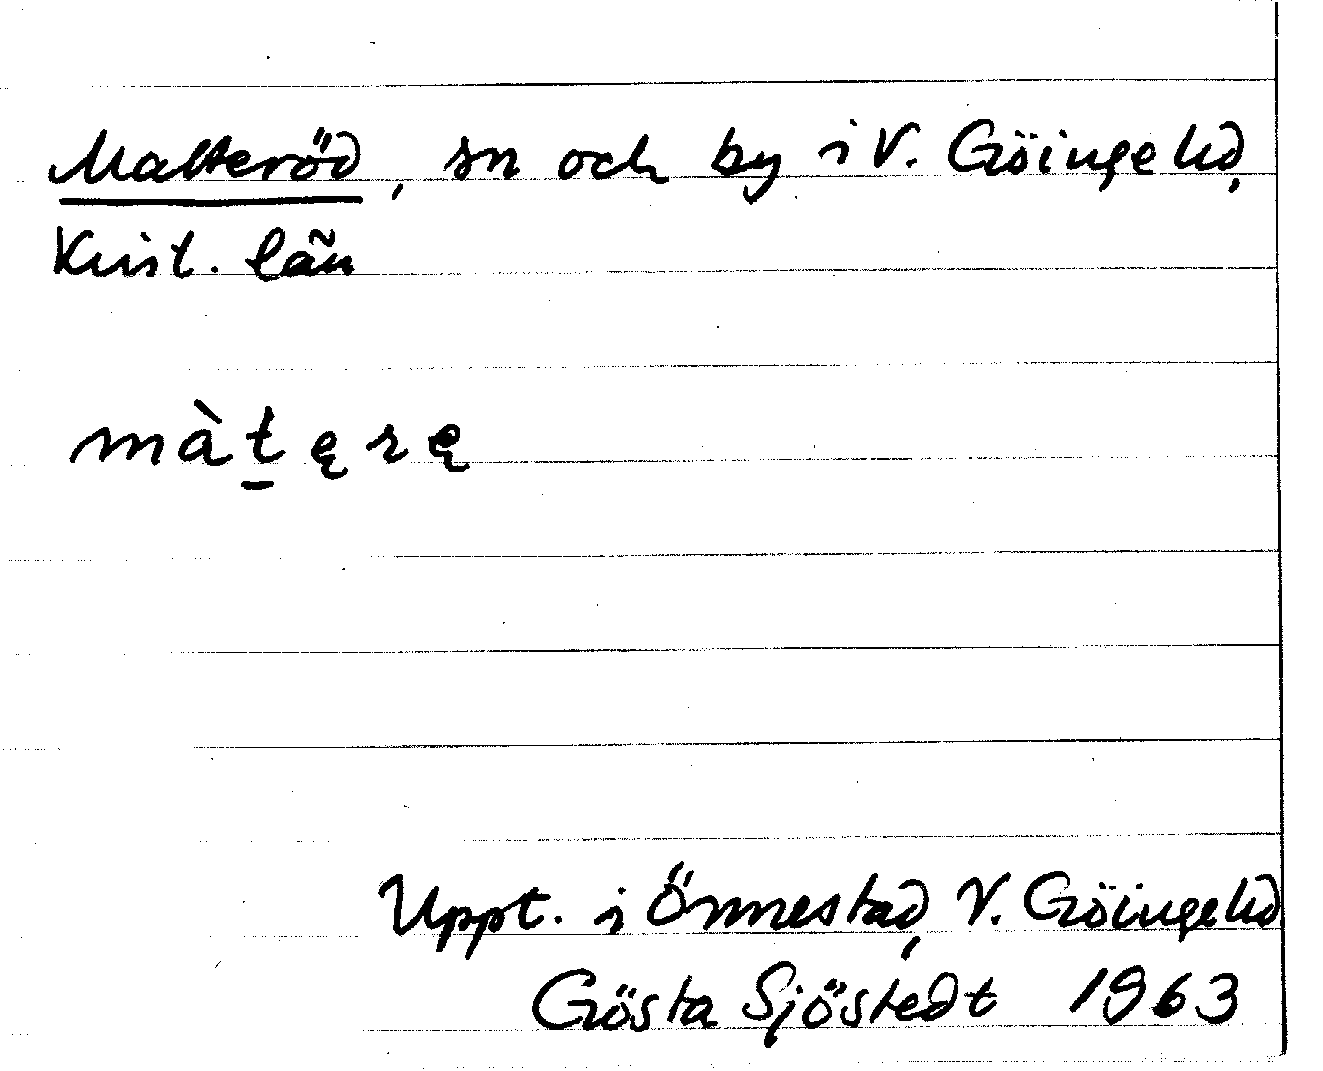 Matteröd, sn och by i V. Göinge hd,
Krist. län
màt̠ęrę
Uppt. i Önnestad, V. Göinge hd
Gösta Sjöstedt 1963